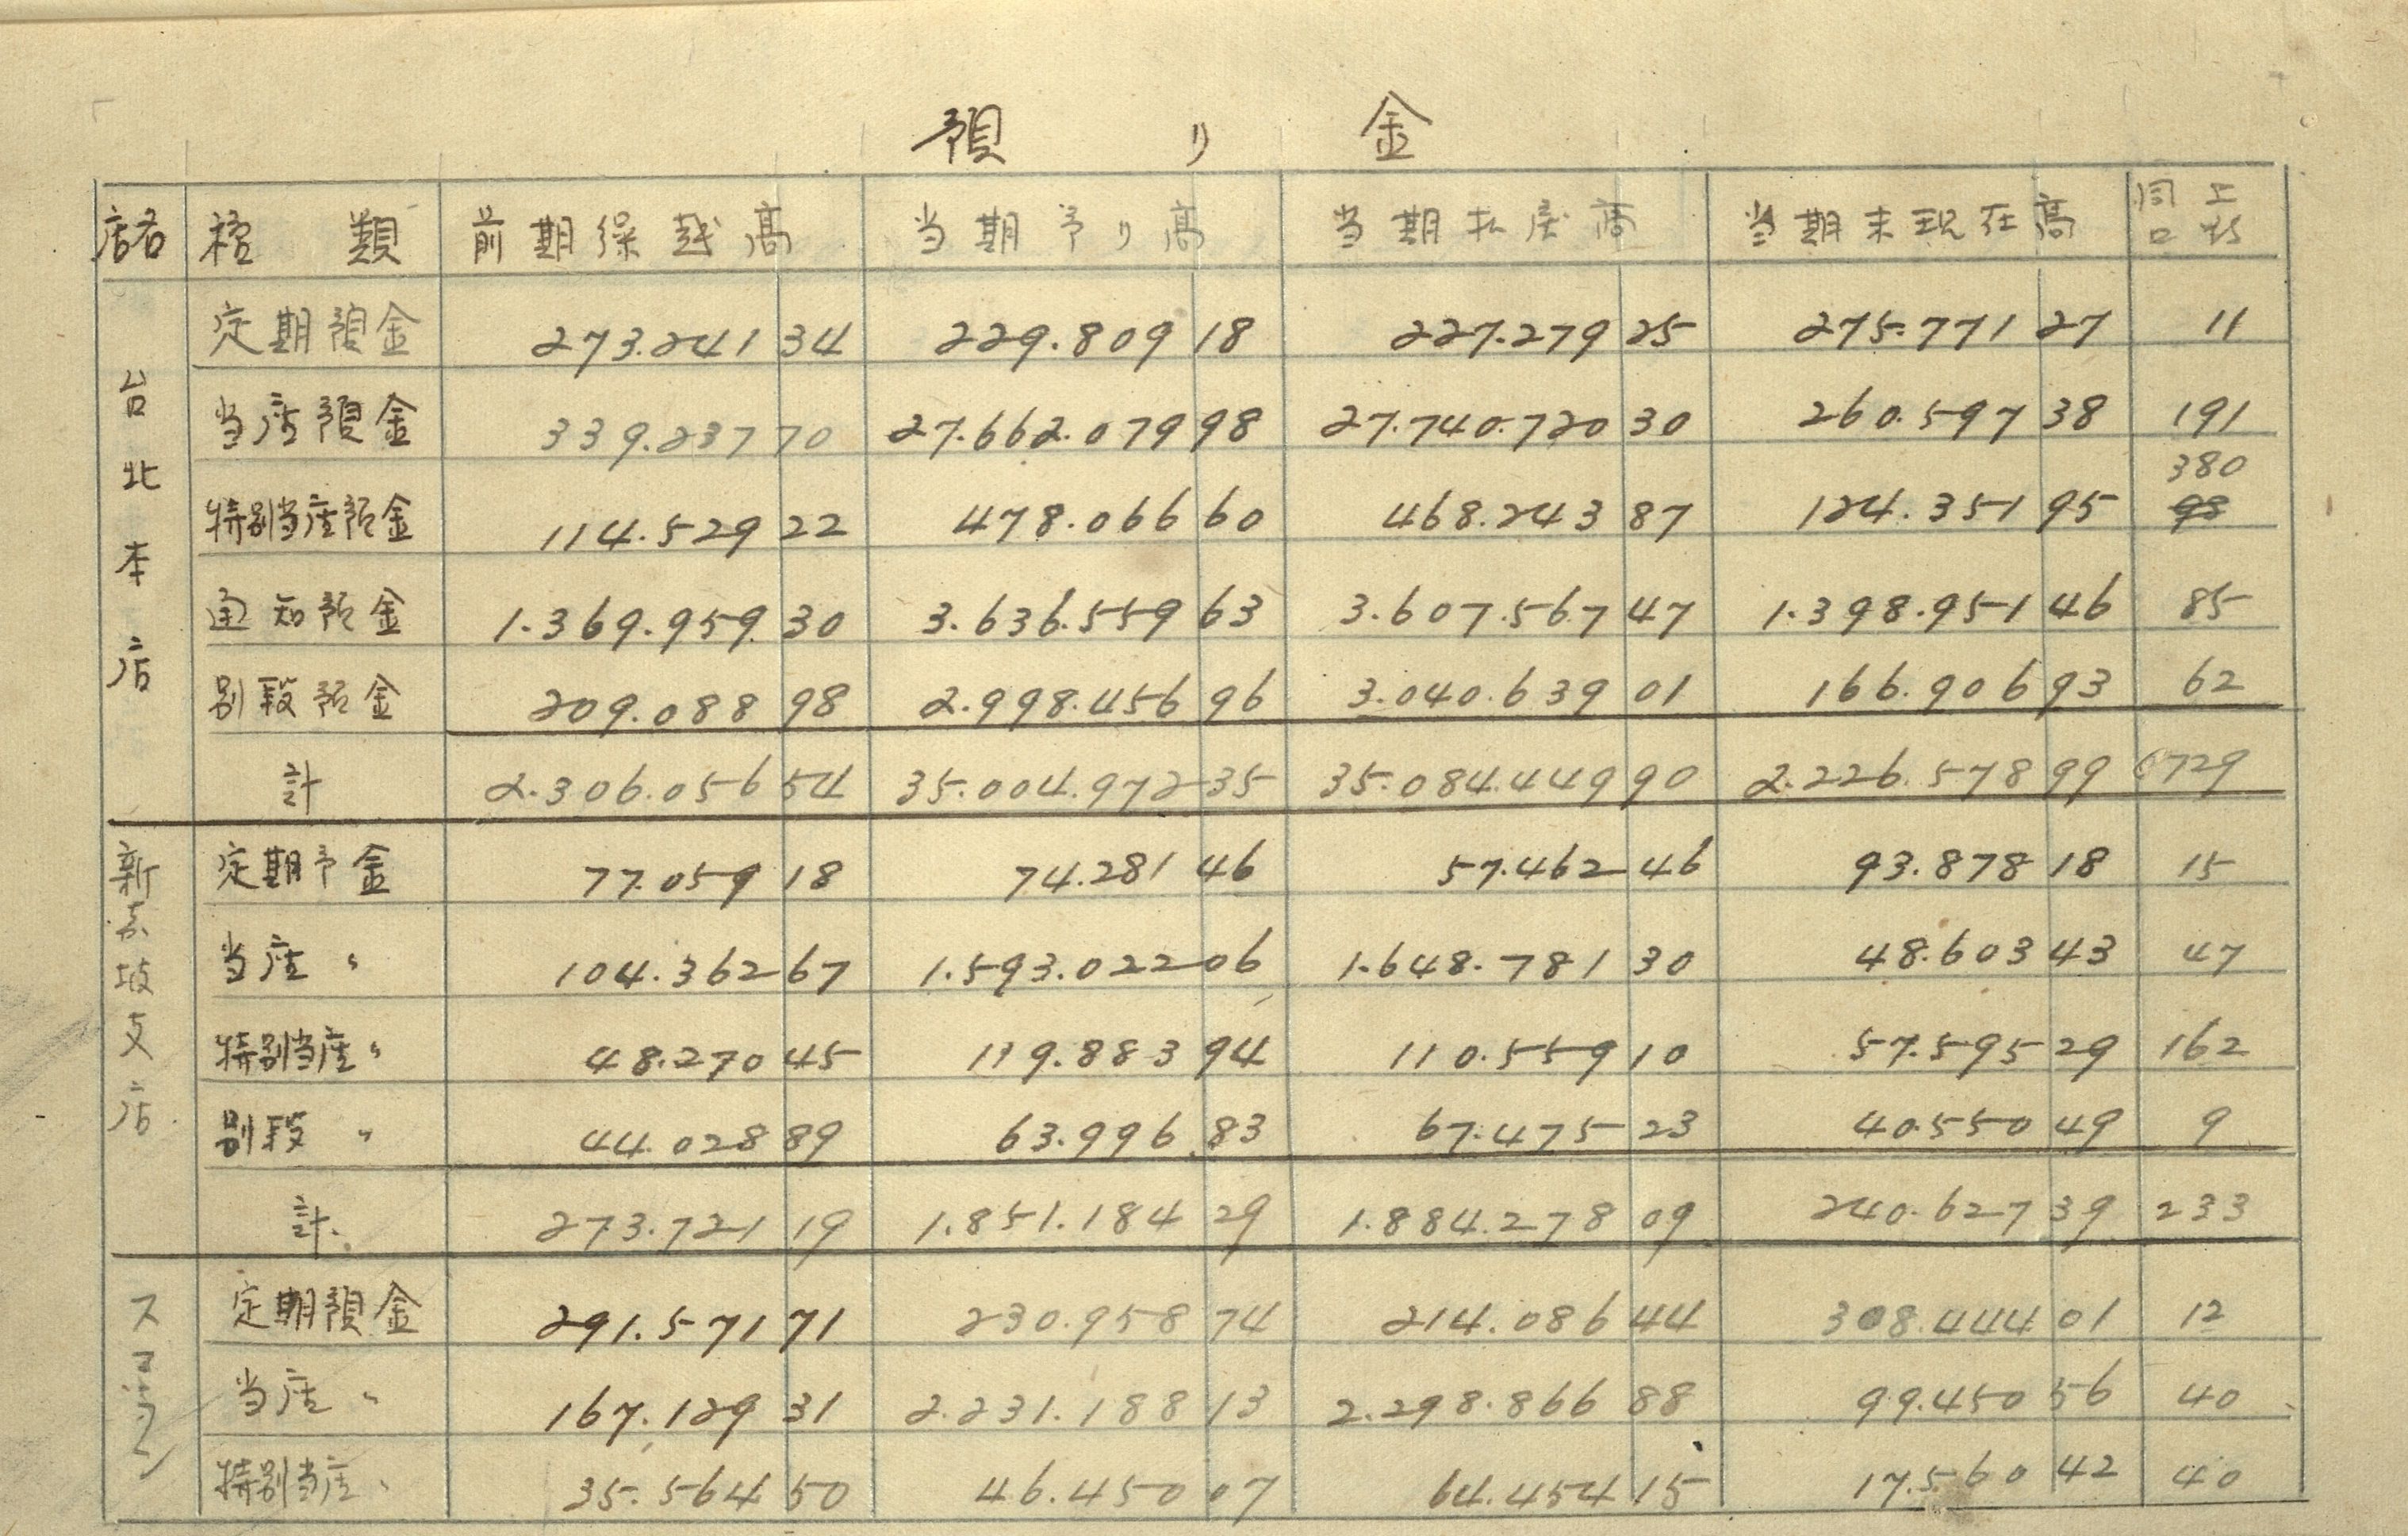 預り金
店名 種類 前期繰越高 当期予り高 当期払戻高 当期末現在高 同上口数
台北本店
定期預金 273.241 34 229.809 18 227.279 25 275.771 27 11
当座預金 339.237 70 27.662.079 98 27.740.720 30 260.597 38 191
380
特別当座預金 114.529 22 478.066 60 468.243 87 124.351 95 98
通知預金 1.369.959 30 3.636.559 63 3.607.567 47 1.398.951 46 85
別段預金 209.088 98 2.998.456 96 3.040.639 01 166.906 93 62
計 2.306.056 54 35.004.972 35 35.084.449 90 2.226.578 99 729
新嘉坡支店
定期予金 77.059 18 74.281 46 57.462 46 93.878 18 15
当座〃 104.362 67 1.593.022 06 1.648.781 30 48.603 43 47
特別当座〃 48.270 45 119.883 94 110.559 10 57.595 29 162
別段〃 44.028 89 63.996 83 67.475 23 40.550 49 9
計 273.721 19 1.851.184 29 1.884.278 09 240.627 39 233
スマラン
定期預金 291.571 71 230.958 74 214.086 44 308.444 01 12
当座〃 167.129 31 2.231.188 13 2.298.866 88 99.450 56 40
特別当座〃 35.564 50 46.450 07 64.454 15 17.560 42 40